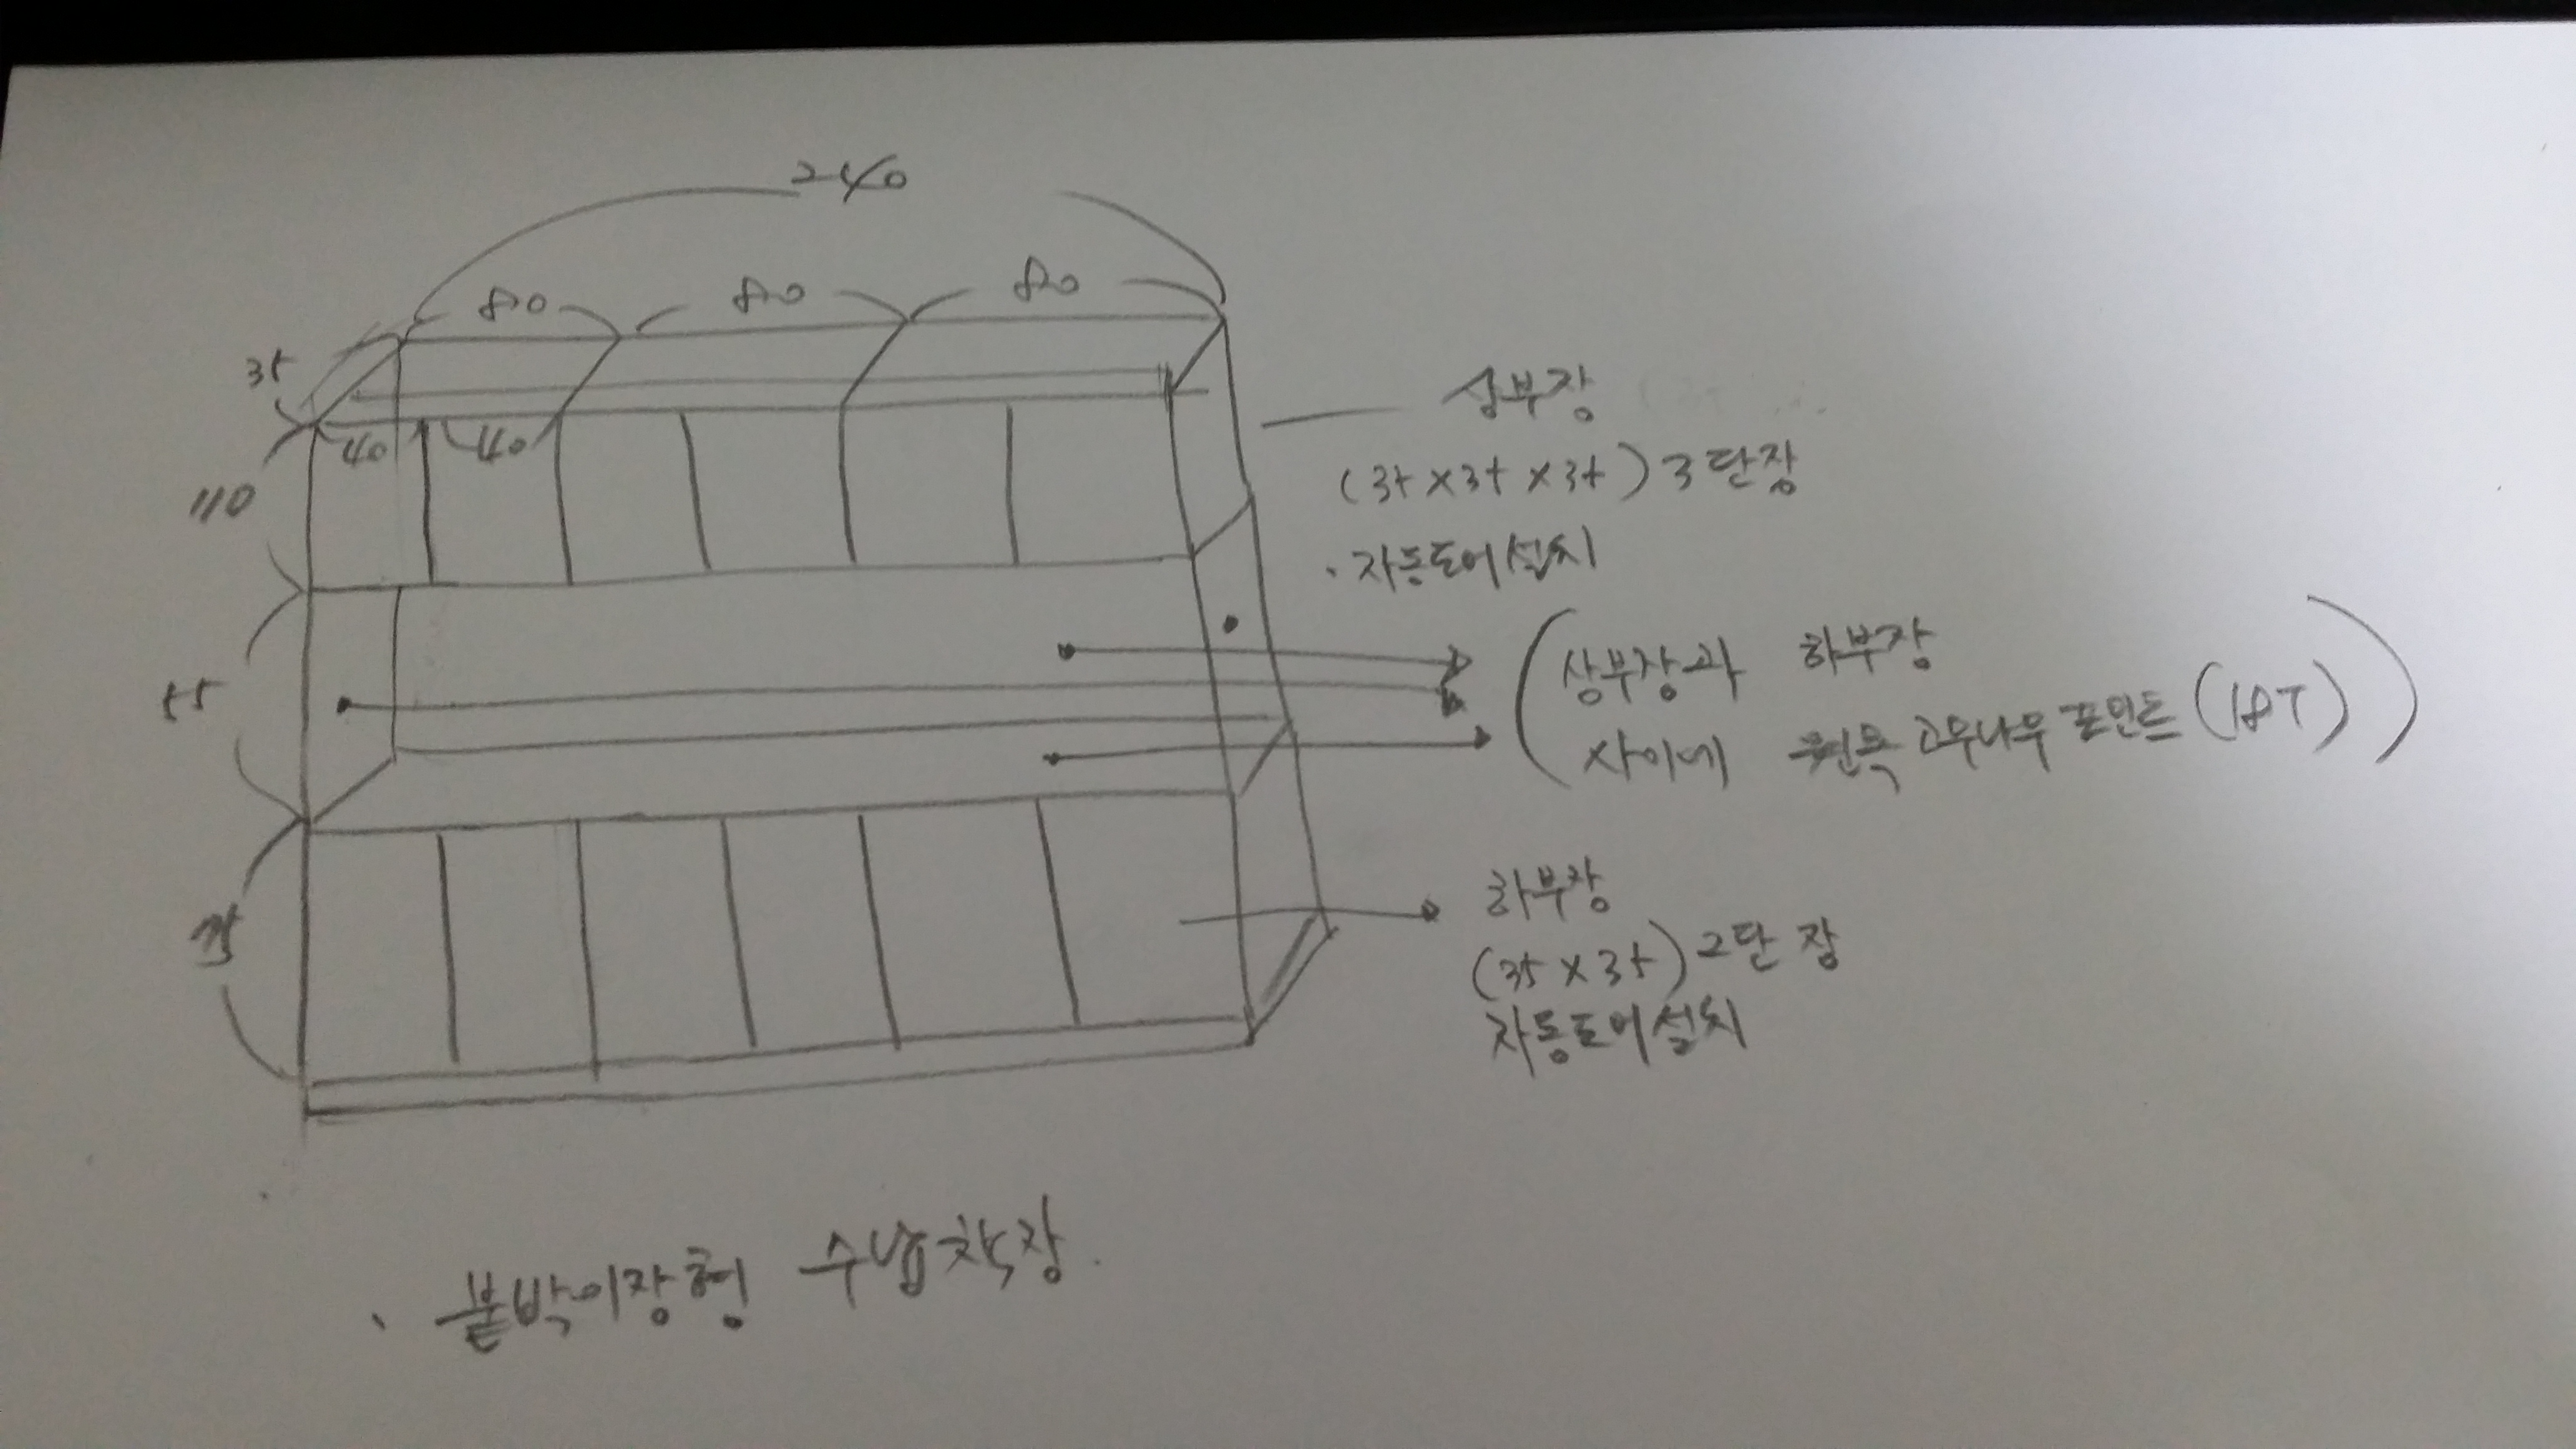 240
80 80 80
35
40 40
110
55
75
상부장
(35 x 35 x 35) 3단장
. 자동도어설치
(상부장과 하부장
사이에 원목 고무나무 포인트 (18T))
하부장
(35 x 35) 2단 장
자동도어설치
. 붙박이장형 수납책장.